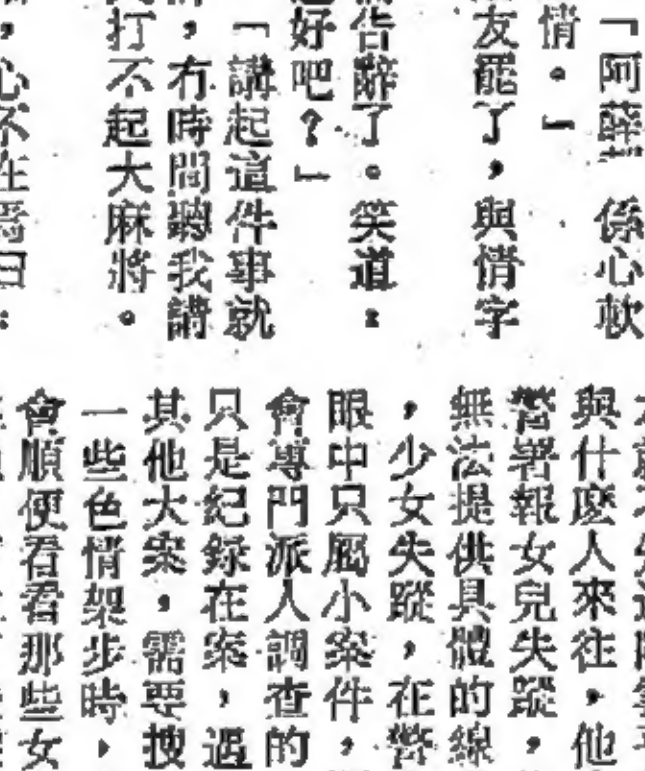 「阿薛 係心軟
情。」
友罷了，與情字
告辭了。笑道：
好吧？」
「講起這件事就
，有時間聽我講
打不起大麻將。
，心不在焉曰：
與什麼人來往，他
警署報女兒失蹤，
無法提供具體的線
，少女失蹤，在警
眼中只屬小案件，
會專門派人調查的
只是紀錄在案，遇
其他大案，需要搜
一些色情架步時，
會順便看看那些女